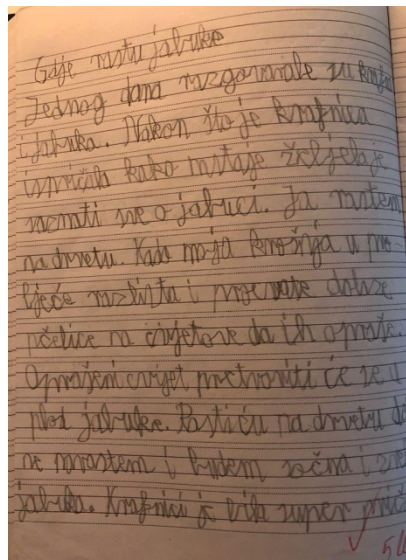 Gdje rastu jabuke
Jednog dana razgovarale su krafna
i jabuka. Nakon što je krafnica
ispričala kako nastaje željela je
saznati sve o jabuci. Ja rastem
na drvetu. Kada moja krošnja u pro-
ljeće razlista i procvate dolaze
pčelice na cvjetove da ih opraše.
Oprašeni cvijet pretvoriti će se u
plod jabuke. Rasti ću na drvetu do
ne narastem i budem sočna i zre
jabuka. Krafnici je bila super priča